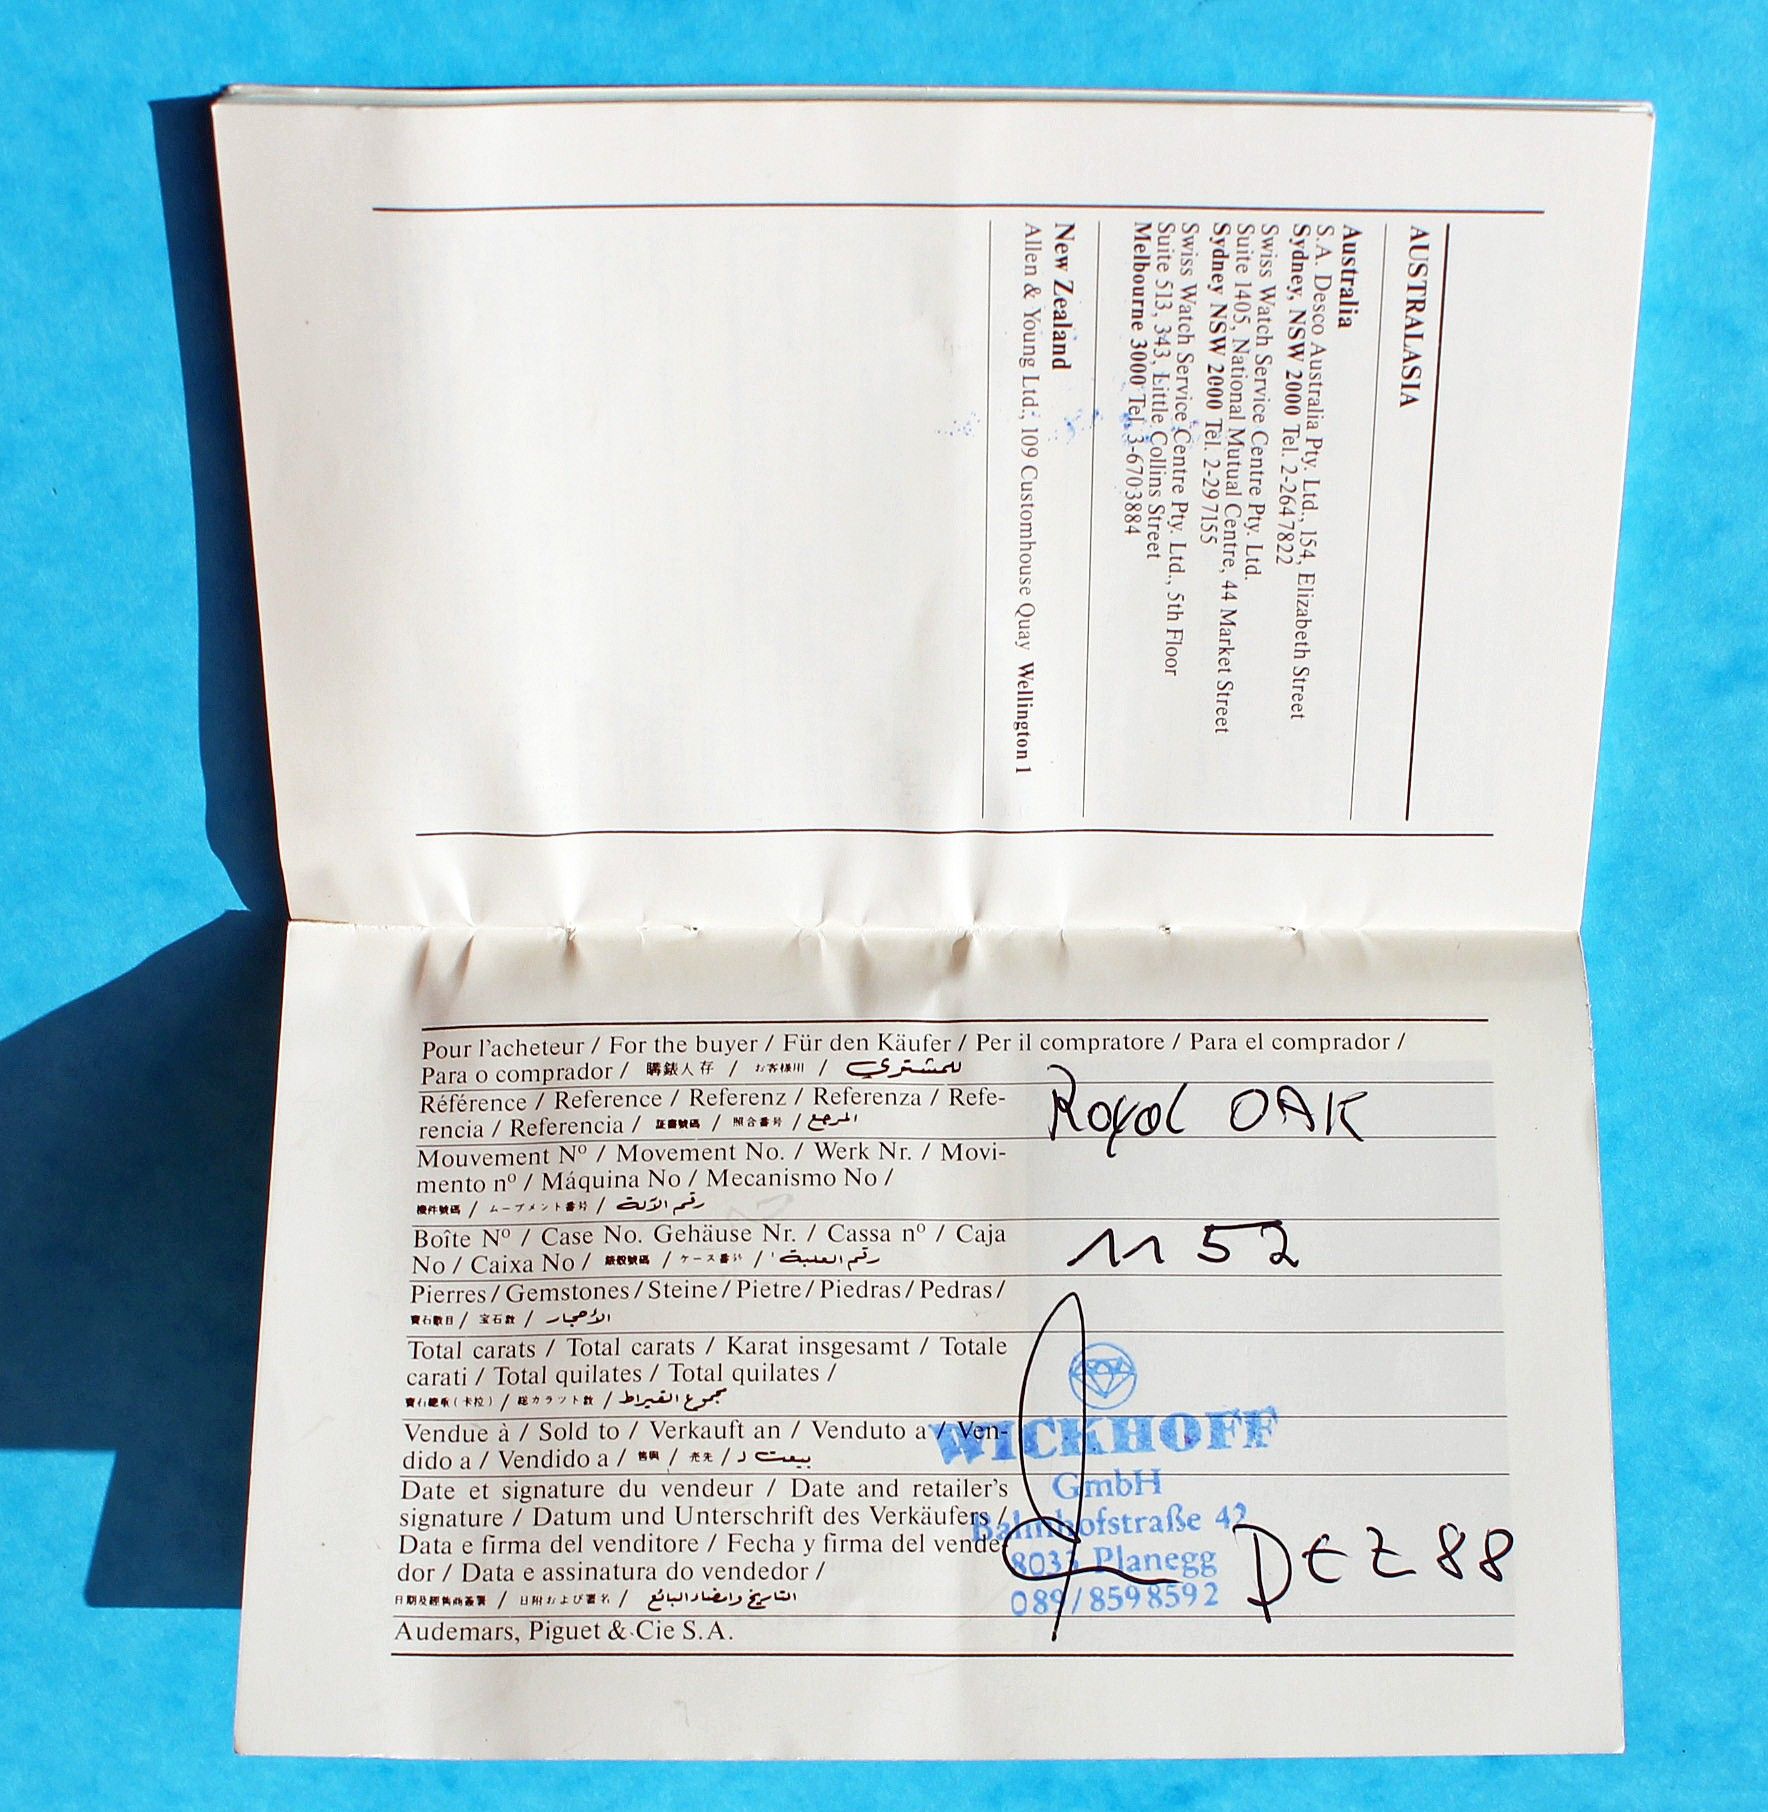 AUSTRALASIA
Australia
S.A. Desco Australia Pty. Ltd., 154, Elizabeth Street
Sydney, NSW 2000 Tel. 2-264 7822
Swiss Watch Service Centre Pty. Ltd.
Suite 1405, National Mutual Centre, 44 Market Street
Sydney NSW 2000 Tel. 2-29 7155
Swiss Watch Service Centre Pty. Ltd., 5th Floor
Suite 513, 343, Little Collins Street
Melbourne 3000 Tel. 3-6703884
New Zealand
Allen & Young Ltd., 109 Customhouse Quay Wellington 1
Pour l'acheteur / For the buyer / Für den Käufer / Per il compratore / Para el comprador /
Para o comprador / 購錶人存 / お客様用 / للمشتري
Référence / Reference / Referenz / Referenza / Refe-
rencia / Referencia / 証書號碼 / 照合番号 / المرجع
Royal OAK
Mouvement Nº / Movement No. / Werk Nr. / Movi-
mento nº / Máquina No / Mecanismo No /
機件號碼 / ムーブメント番号 / رقم الآلة
Boîte Nº / Case No. Gehäuse Nr. / Cassa nº / Caja
No / Caixa No / 錶殼號碼 / ケース番号 / رقم العلبة
1152
Pierres / Gemstones / Steine / Pietre / Piedras / Pedras /
寶石數目 / 宝石数 / الأحجار
Total carats / Total carats / Karat insgesamt / Totale
carati / Total quilates / Total quilates /
寶石總重(卡拉) / 総カラット数 / مجموع القيراط
Vendue à / Sold to / Verkauft an / Venduto a / Ven-
dido a / Vendido a / 售與 / 売先 / بيعت لـ
Date et signature du vendeur / Date and retailer's
signature / Datum und Unterschrift des Verkäufers /
Data e firma del venditore / Fecha y firma del vende-
dor / Data e assinatura do vendedor /
日期及經售商簽署 / 日附および署名 / التاريخ وامضاء البائع
WICKHOFF
GmbH
Bahnhofstraße 42
8033 Planegg
089/8598592
DEZ 88
Audemars, Piguet & Cie S.A.